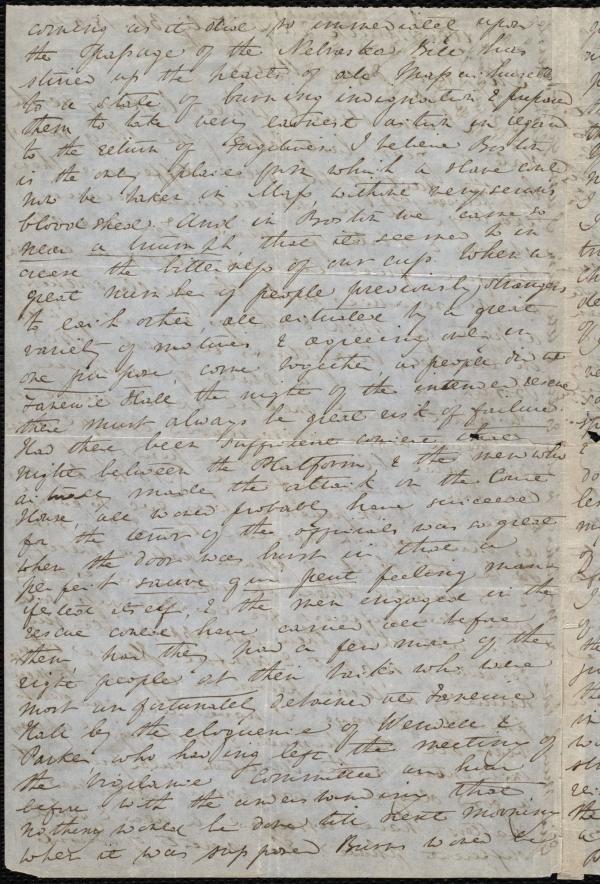 coming as it did so immediately upon
the passage of the Nebraska Bill, has
stirred up the hearts of all Massachusetts
to a state of burning indignation & prepared
them to take very earnest action in regard
to the return of Fugitives. I believe Boston
is the only place from which a slave could
not be taken in Mass, without very serious
bloodshed. And in Boston we came so
near a triumph, that it seemed to in
crease the bitterness of our cup. When a
great number of people previously strangers
to each other, all actuated by a great
variety of motives, & agreeing only in
one purpose, come together, as people did at
Faneuil Hall the night of the intended rescue
there must always be great risk of failure.
Had there been sufficient concert that
night between the Platform, & the men who
actually made the attack on the Court
House, all would probably have succeeded
for the terror of the officials was so great
when the door was burst in that a
perfect sauve qui peut feeling mani
fested itself, & the men engaged in the
rescue could have carried all before
them, had they had a few more of the
right people at their backs who were
most unfortunately detained at Faneuil
Hall by the eloquence of Wendell &
Parker who having left the meeting of
the Vigilance Committee an hour
before with the understanding that
nothing would be done till next morning
when it was supposed Burns would be